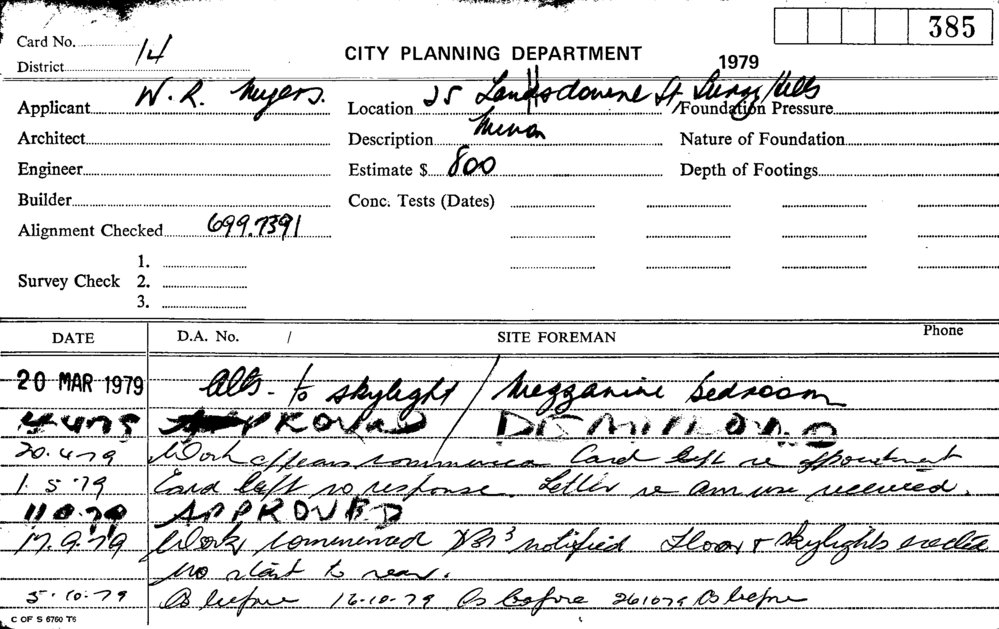 385
Card No. 14
CITY PLANNING DEPARTMENT
District
1979
Applicant W. R. Myers. Location 25 Landsdowne St Surry Hills Foundation Pressure
Architect Description Minor Nature of Foundation
Engineer Estimate $ 800 Depth of Footings
Builder Conc. Tests (Dates)
Alignment Checked 699.7391
1.
Survey Check 2.
3.
DATE D.A. No. / SITE FOREMAN Phone
20 MAR 1979 Alts - to skylight / Mezzanine bedroom
APPROVED
20.4.79 Work appears commence Card left re appointment
1.5.79 Card left no response. Letter re received.
APPROVED
17.9.79 Work commenced notified Floor + skylights erected
No start to rear.
5.10.79 As before 16-10-79 As before 261079 As before
C OF S 6760 T6